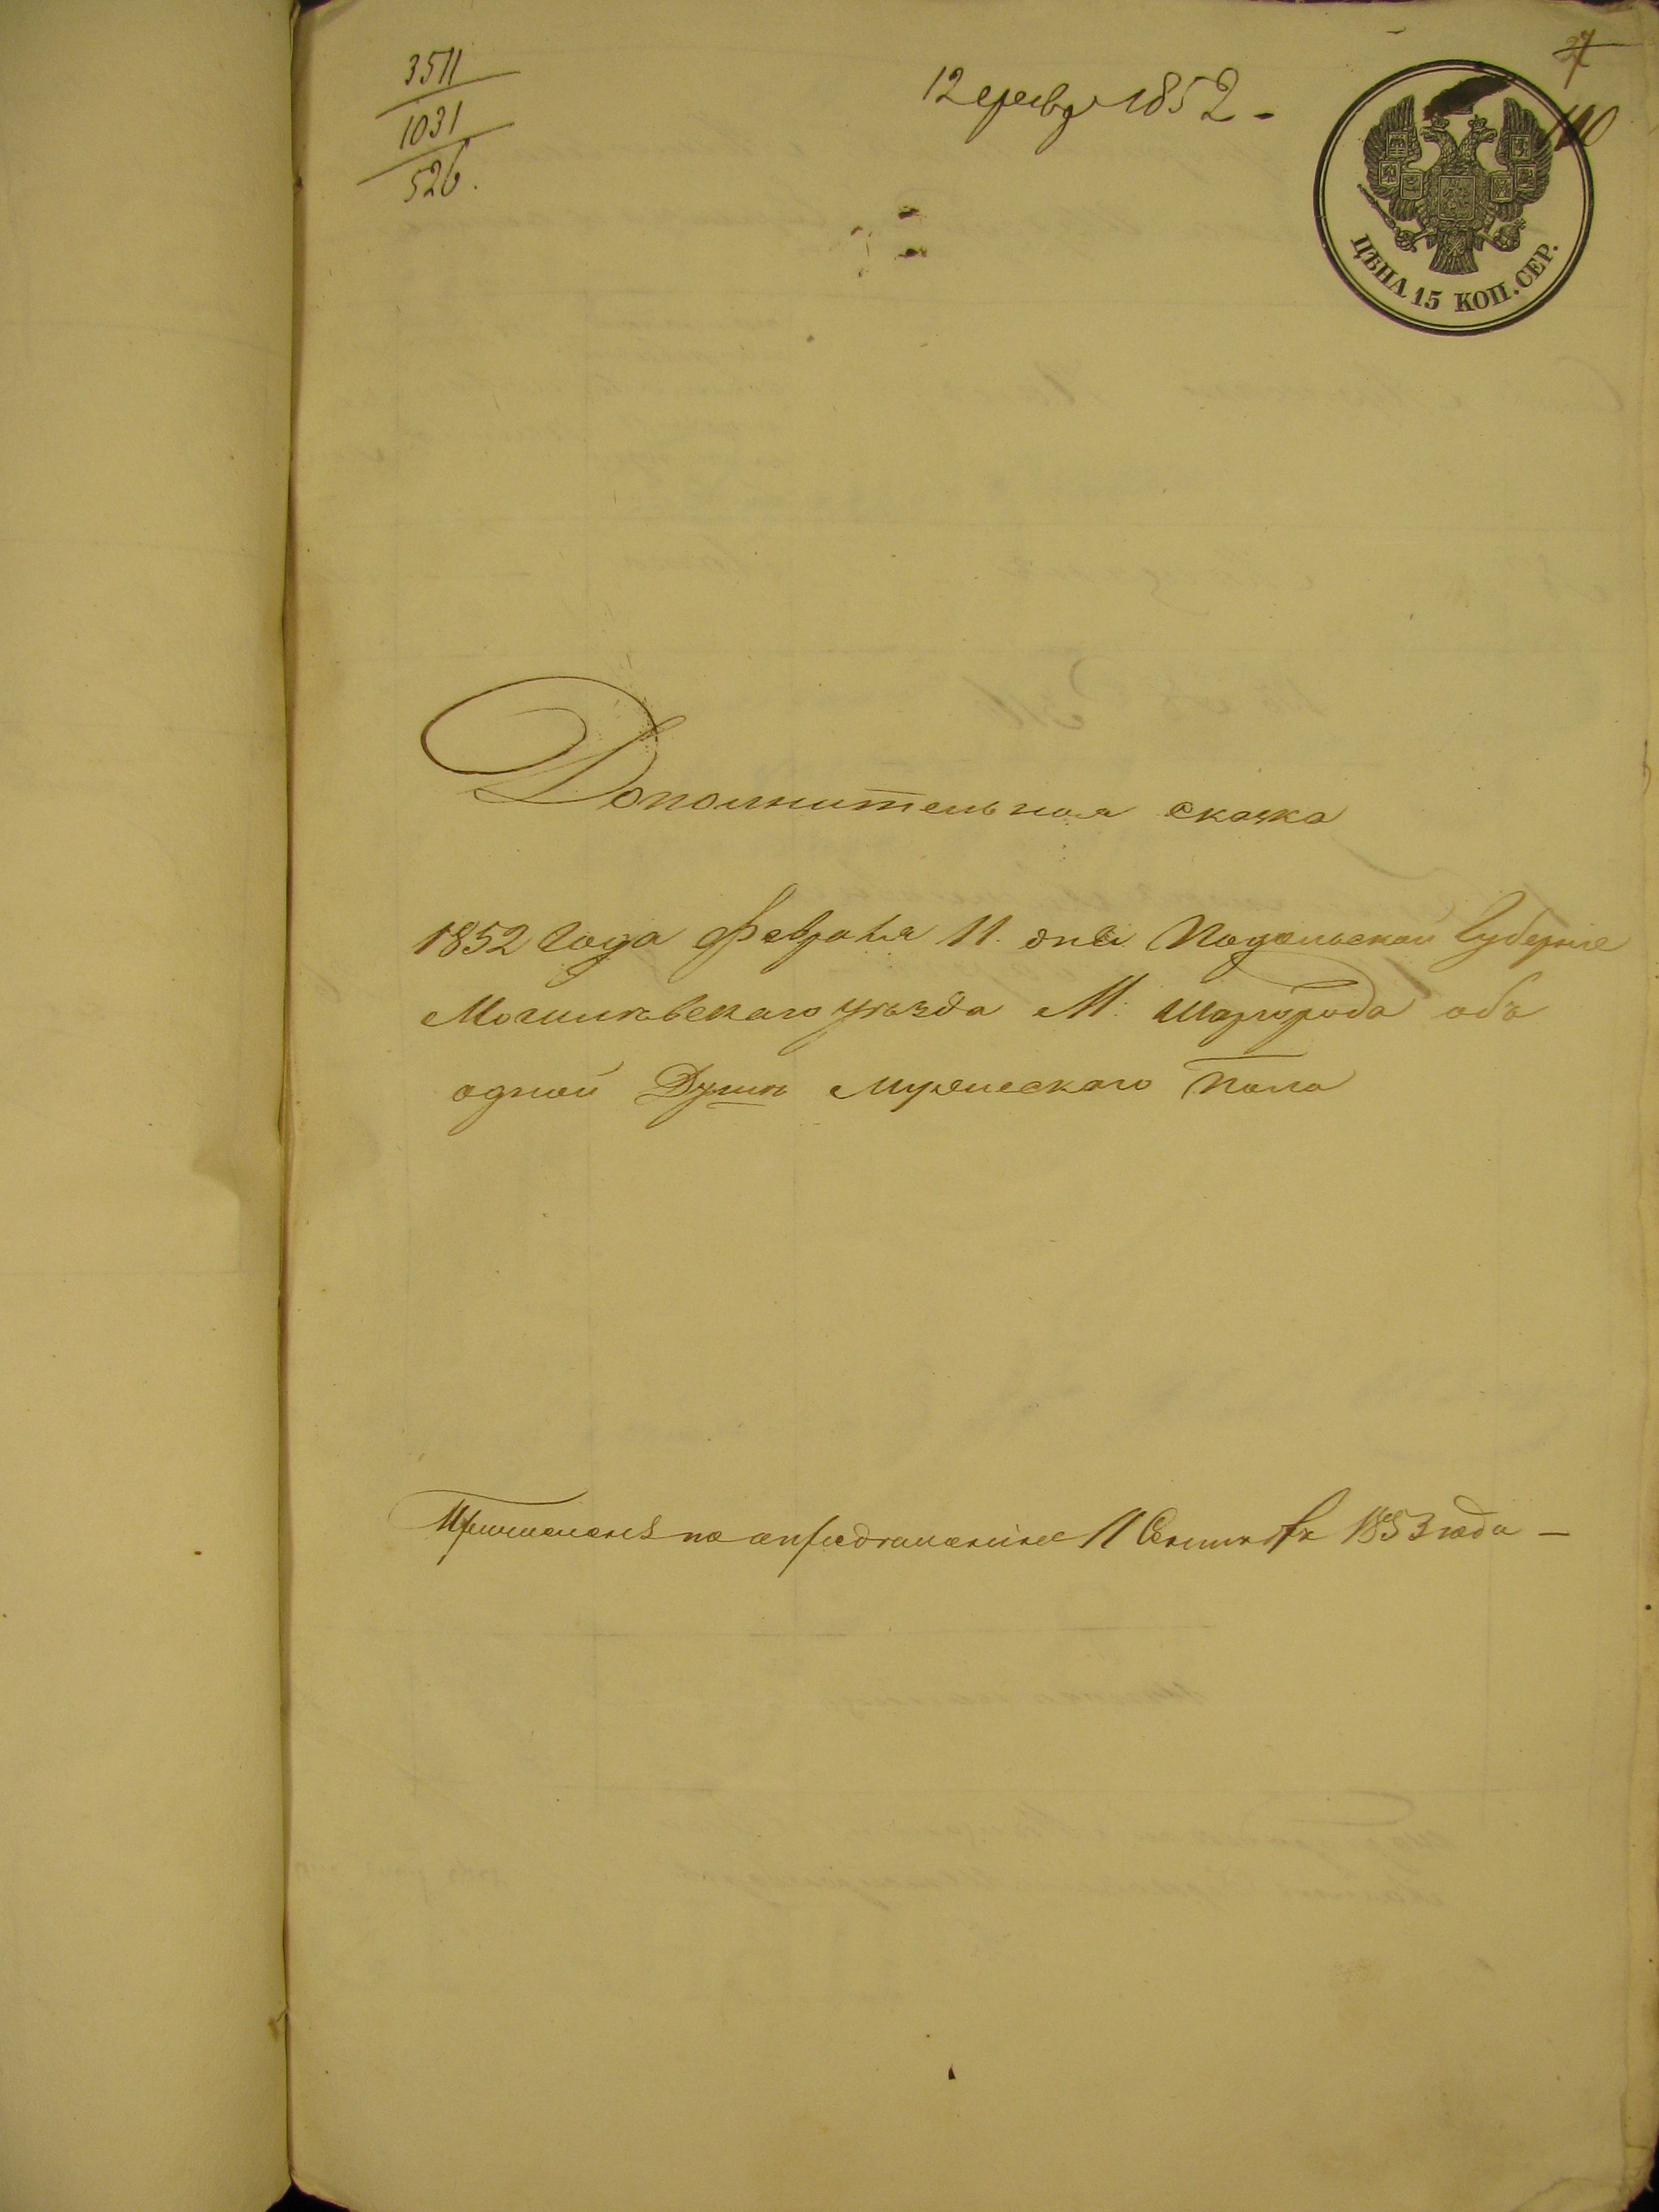 3511
1031
526.
12 февр 1852 -
27
110
ЦѢНА 15 КОП. СЕР.
Дополнительная сказка
1852 года Февраля 11. дня Подольской Губерніи
Могилевскаго уѣзда М. Шаргорода объ
одной Душѣ мужескаго пола
по 11 Сентября 1853 года —